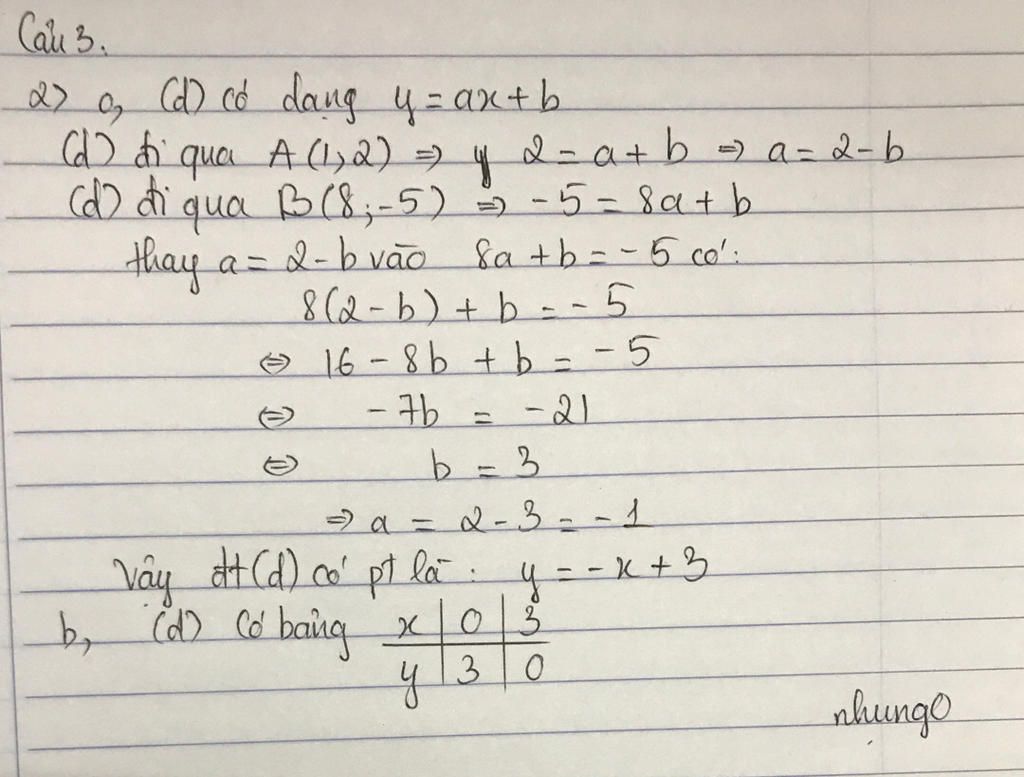 Câu 3.
2> a, (d) có dạng y = ax + b
(d) đi qua A (1,2) => y 2 = a + b => a = 2 - b
(d) đi qua B(8;-5) => -5 = 8a + b
thay a = 2 - b vào 8a + b = - 5 có:
8(2 - b) + b = - 5
<=> 16 - 8b + b = - 5
<=> -7b = -21
<=> b = 3
=> a = 2 - 3 = -1
Vậy đt (d) có pt là: y = -x + 3
b, (d) có bảng x | 0 | 3
y | 3 | 0
nhung0